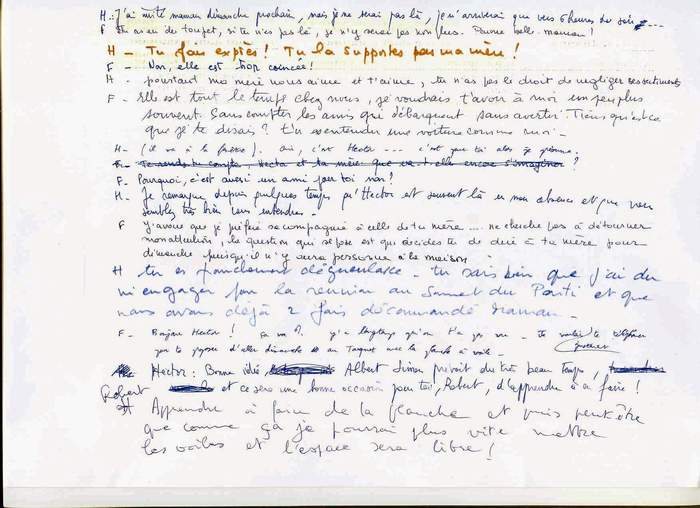 H - J'ai invité maman dimanche prochain, mais je ne serai pas là, je n'arriverai que vers 6 heures du soir
F Tu as eu du toupet, si tu n'es pas là, je n'y serai pas non plus. Pauvre belle-maman !
H - Tu fais exprès ! Tu la supportes pas ma mère !
F - Non, elle est trop coincée !
H - pourtant ma mère nous aime et t'aime, tu n'as pas le droit de négliger ses sentiments
F - Elle est tout le temps chez nous, je voudrais t'avoir à moi un peu plus
souvent. Sans compter les amis qui débarquent sans avertir. Tiens qu'est ce
que je te disais ? T'as entendu une voiture comme moi -
H - (il va à la fenêtre). Oui, c'est Hector --- c'est pour toi alors je présume.
F. Te rends tu compte, Hector et ta mère, que va-t-elle encore s'imaginer ?
F - Pourquoi, c'est aussi un ami pour toi non ?
H - Je remarque depuis quelques temps qu'Hector est souvent là en mon absence et que vous
semblez très bien vous entendre -
F J'avoue que je préfère sa compagnie à celle de ta mère .... ne cherche pas à détourner
mon attention, la question qui se pose est que décides tu de dire à ta mère pour
dimanche puisqu'il n'y aura personne à la maison
H tu es franchement dégueulasse - tu sais bien que j'ai dû
m'engager pour la réunion au Sommet du Parti et que
nous avons déjà 2 fois décommandé maman -
F - Bonjour Hector ! Ça va ? y'a longtemps qu'on t'a pas vu - Je voulais te téléphoner
pour te proposer d'aller dimanche au Touquet avec la planche à voile -
Hector : Bonne idée, Albert Simon prévoit du très beau temps,
et ce sera une bonne occasion pour toi, Robert, d'apprendre à en faire !
Robert Apprendre à faire de la planche et puis peut-être
que comme ça je pourrai plus vite mettre
les voiles et l'espace sera libre !